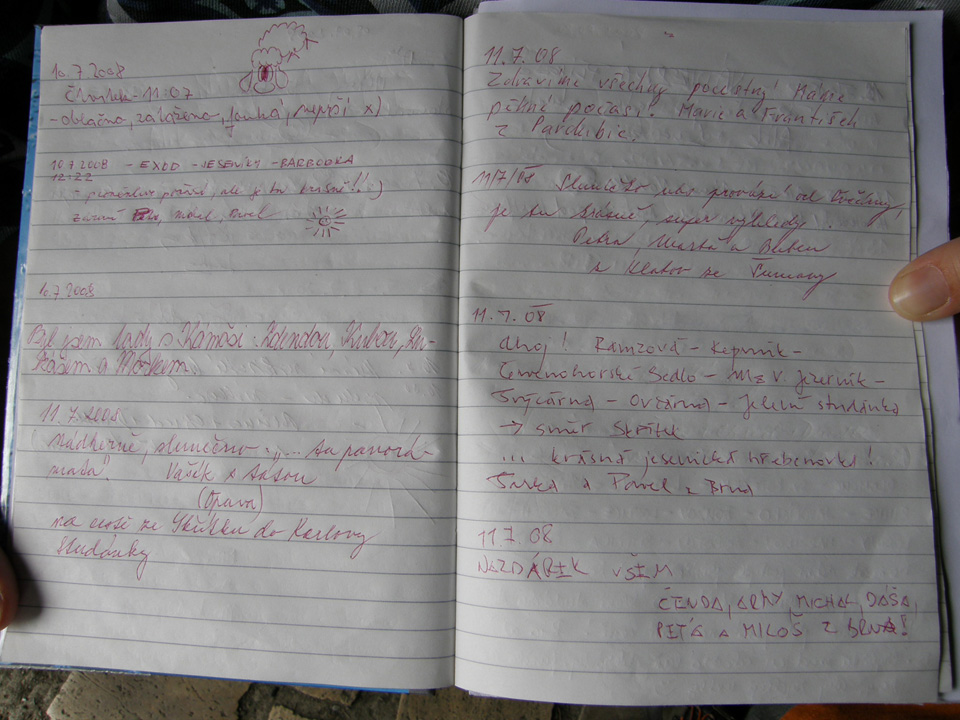 10.7.2008
Čtvrtek - 11:07
- oblačno, zataženo, fouká, neprší x)
10.7.2008 - EXOD - JESENÍKY - BARBORKA
12:22
ale je tu krásně!! :)
zdraví
10.7.2008
Byl jsem tady s Kámoši: Kubou,
a Mojkem.
11.7.2008
Nádherně, slunečno ... ta panorá-
mata! Vašík s
(Opava)
na cestě ze Skřítku do Karlovy
Studánky
11.7.08
Zdravíme všechny poctivý! Máme
pěkné počasí. Marie a František
z Pardubic.
11/7/08 Sluníčko nás provází od
je tu krásně, super výhledy!
Petra, a
z Klatov ze Šumavy
11.7.08
Ahoj! Ramzová - Keprník -
Červenohorské Sedlo -
Švýcárna - Ovčárna - Jelení studánka
→ směr Skřítek
... krásná jesenická hřebenovka!
Šárka a Pavel z Brna
11.7.08
NAZDÁREK VŠEM
ČENDA, ARNY, MICHAL, DÁŠA,
PEŤA A MILOŠ Z BRNA!